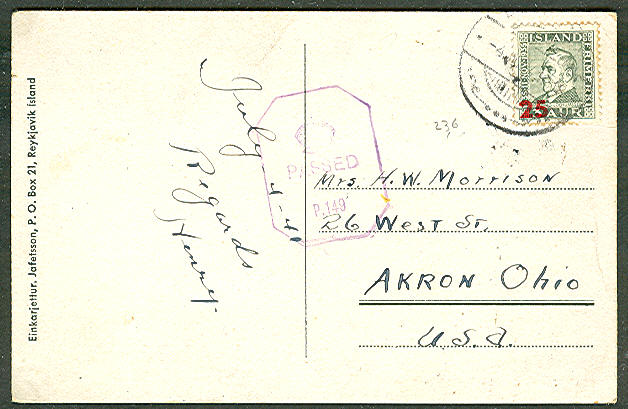 Einkarjettur. Jafetsson, P. O. Box 21, Reykjavik Island
July-4-41
Regards
Henry.
PASSED
P.149
236
ISLAND
25
AUR
Mrs. H. W. Morrison
26 West St.
AKRON Ohio
U.S.A.